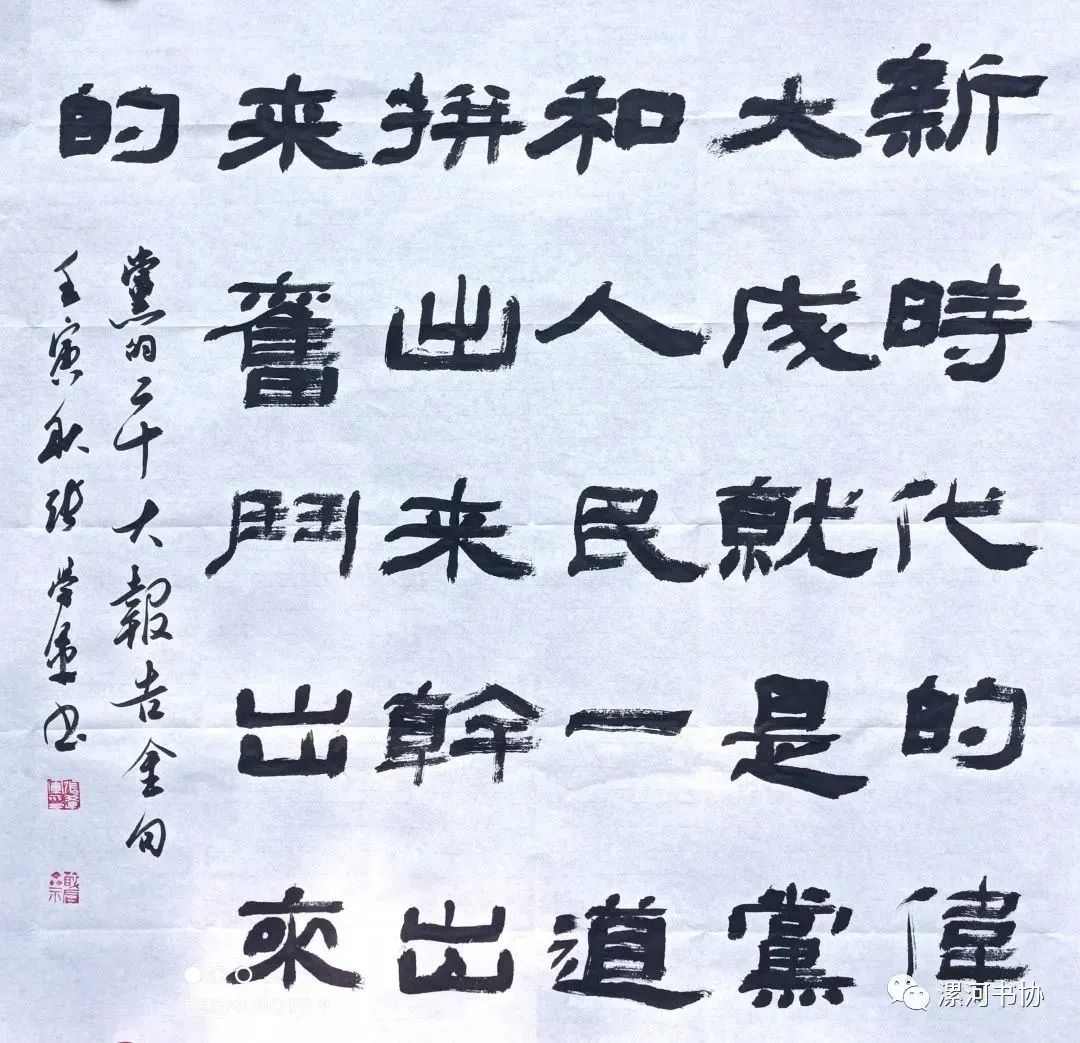 新時代的偉
大成就是黨
和人民一道
拼出来幹出
来奮鬥出來
的
黨的二十大報告金句
壬寅秋张书
REDMI NOTE 8
漯河书协